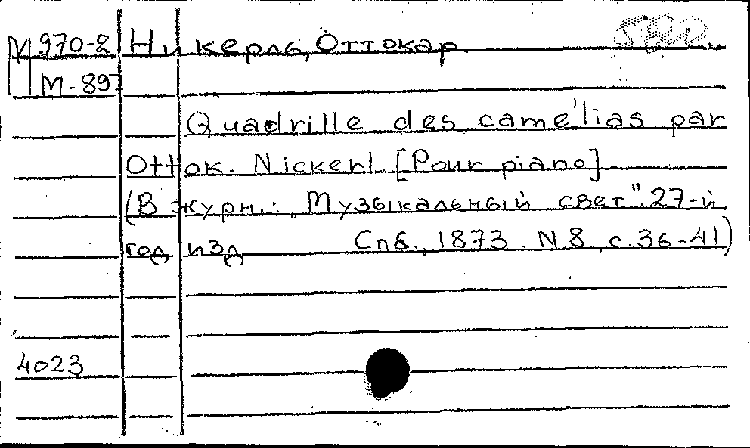 М 970-2 Никерль, Оттокар
М-897
Quadrille des camélias par
Ottok. Nickerl [Pour piano]
(В журн.: "Музыкальный свет". 27-й
год изд Спб., 1873. N 8, с. 36-41)
4023